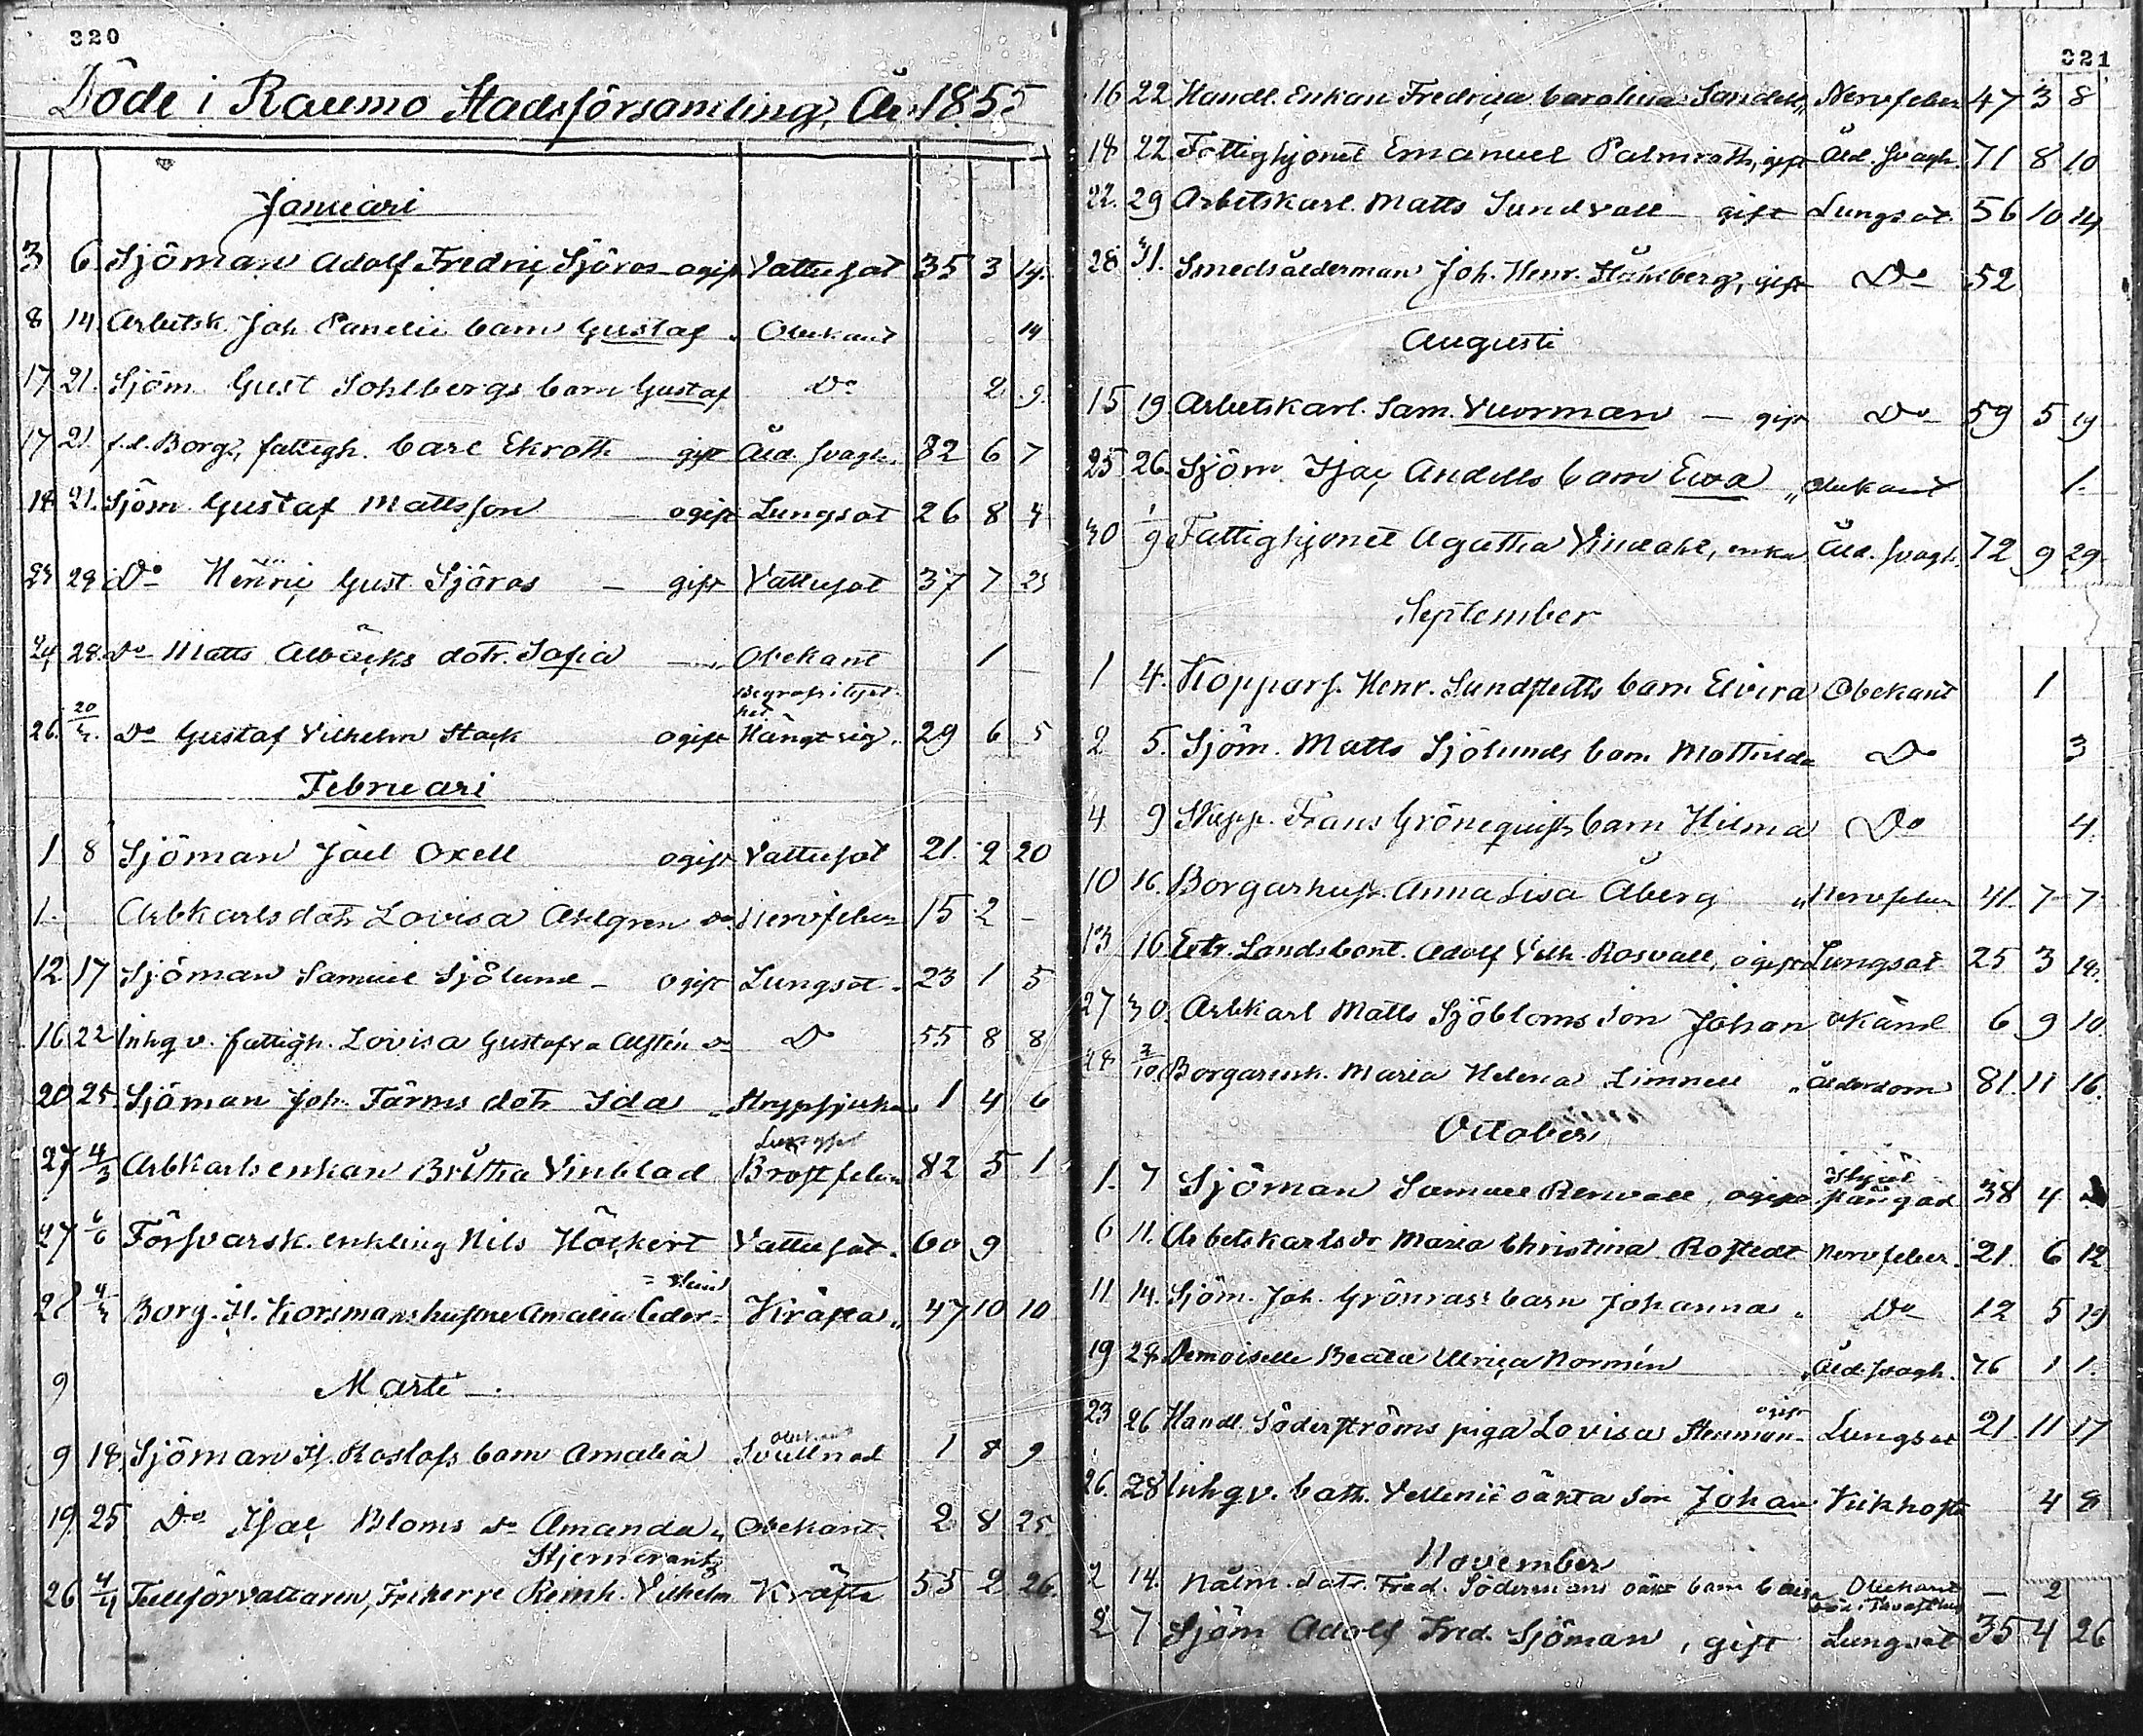 320
Döde i Raumo Stadsförsamling, År 1855
Januari
3 6 Sjöman Adolf Fredric Sjöros ogift Vattusot 35 3 14.
8 14 Arbetsk. Joh. Panelii barn Gustaf " Obekant 14
17 21. Sjöm. Gust Sohlbergs barn Gustaf Do 2 9.
17 21. f.d. Borg., fattigh. Carl Ekroth gift Åld. svagh. 82 6 7
18 21. Sjöm Gustaf Mattsson — ogift Lungsot 26 8 4
23 29 Do Henric Gust. Sjöros — gift Vattusot 37 7 23
24 28. Do Matts Albäcks dotr. Sofia — Obekant 1 —
Begrafs i tysthet
26. 20/3. Do Gustaf Vilhelm Stark ogift Hängt sig. 29 6 5
Februari
1 8 Sjöman Joel Oxell ogift Vattusot 21. 2 20
1. Arbkarls dotr Lovisa Ahlgren Do Nervfeber 15 2 —
12 17 Sjöman Samuel Sjölund — ogift Lungsot. 23 1 5
16 22 Inhqv. fattigh. Lovisa Gustafva Alftén Do D 55 8 8
20 25 Sjöman Joh. Färms dotr Ida " Strypsjuka 1 4 6
Lungsot
27 4/3 Arbkarlsenkan Britha Vinblad Bröstfeber 82 5 1
27 6/6 Försvarsk. enkling Nils Höckert Vattusot. 60 9
27 4/3 Borg. H. Korsmans hustru Amalia Ceder- Kräfta " 47 10 10
9 Marti —.
Obekant
9 18. Sjöman Is. Roslofs barn Amalia Svullnad 1 8 9
19 25 Do Isac Bloms Do Amanda " Obekant. 2 8 25
Stjernerantz
26 4/4 Tullförvaltaren, Friherre Reinh. Vilhelm Kräfta 55 2 26.
321
16 22 Handl. Enkan Fredrica Carolina Sandell " Nervfeber 47 3 8
18 22 Fattighjonet Emanuel Palmroth, gift Åld. svagh. 71 8 10
22. 29 Arbetskarl. Matts Sundvall — gift Lungsot. 56 10 14
28 31. Smedsålderman Joh. Henr. Ståhlberg, gift Do 52
Augusti
15 19 Arbetskarl. Sam. Vuorman — gift Do 59 5 19
25 26. Sjöm. Isac Andells barn Eva " Obekant 1.
30 1/9 Fattighjonet Agatha Vindahl, enka, Åld. svagh. 72 9 29.
September
1 4. Kopparsl. Henr. Lundstedts barn Elvira Obekant 1
2 5. Sjöm. Matts Sjölunds barn Mathilda Do 3
4 9 Skepp. Frans Grönqvists barn Hilma Do 4.
10 16. Borgarhust. Anna Lisa Åberg " Nervfeber 41. 7 7
13 16. Extr. Landskont. Adolf Vilh. Rosvall, ogift Lungsot 25 3 18.
27 30. Arbkarl Matts Sjöbloms son Johan okänd 6 9 10.
28 2/10. Borgarenk. Maria Helena Limnell " Ålderdom 81. 11 16.
October
1. 7 Sjöman Samuel Renvall, ogift 38 4
6 11. Arbetskarlsdr Maria Christina Rostedt Nervfeber. 21 6 12
11 14. Sjöm. Joh. Grönroos barn Johanna " Do 12 5 19
19 28. Demoiselle Beata Ulrica Normén " Åld. svagh. 76 1 1.
ogift
23 26 Handl. Söderströms piga Lovisa Stenman. Lungsot 21 11 17
26. 28 Inhqv. Cath. Vellenii oäkta son Johan Kikhosta 4 8
November
2 14. dotr. Fred. Södermans oäkt barn Obekant — 2
2 7 Sjöm Adolf Fred. Sjöman, gift Lungsot 35 4 26